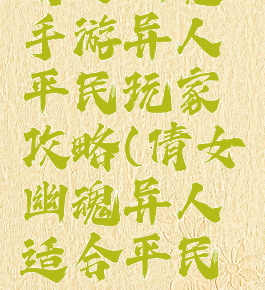 手游异人
平民玩家
攻略(倩女
幽魂异人
适合平民